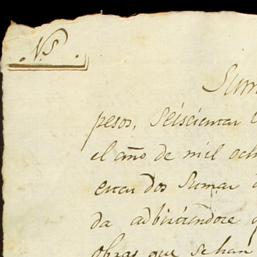 N.5
Sum
pesos, seiscientas
el año de mil och
entas dos sumas
da advirtiendose
obras que se han